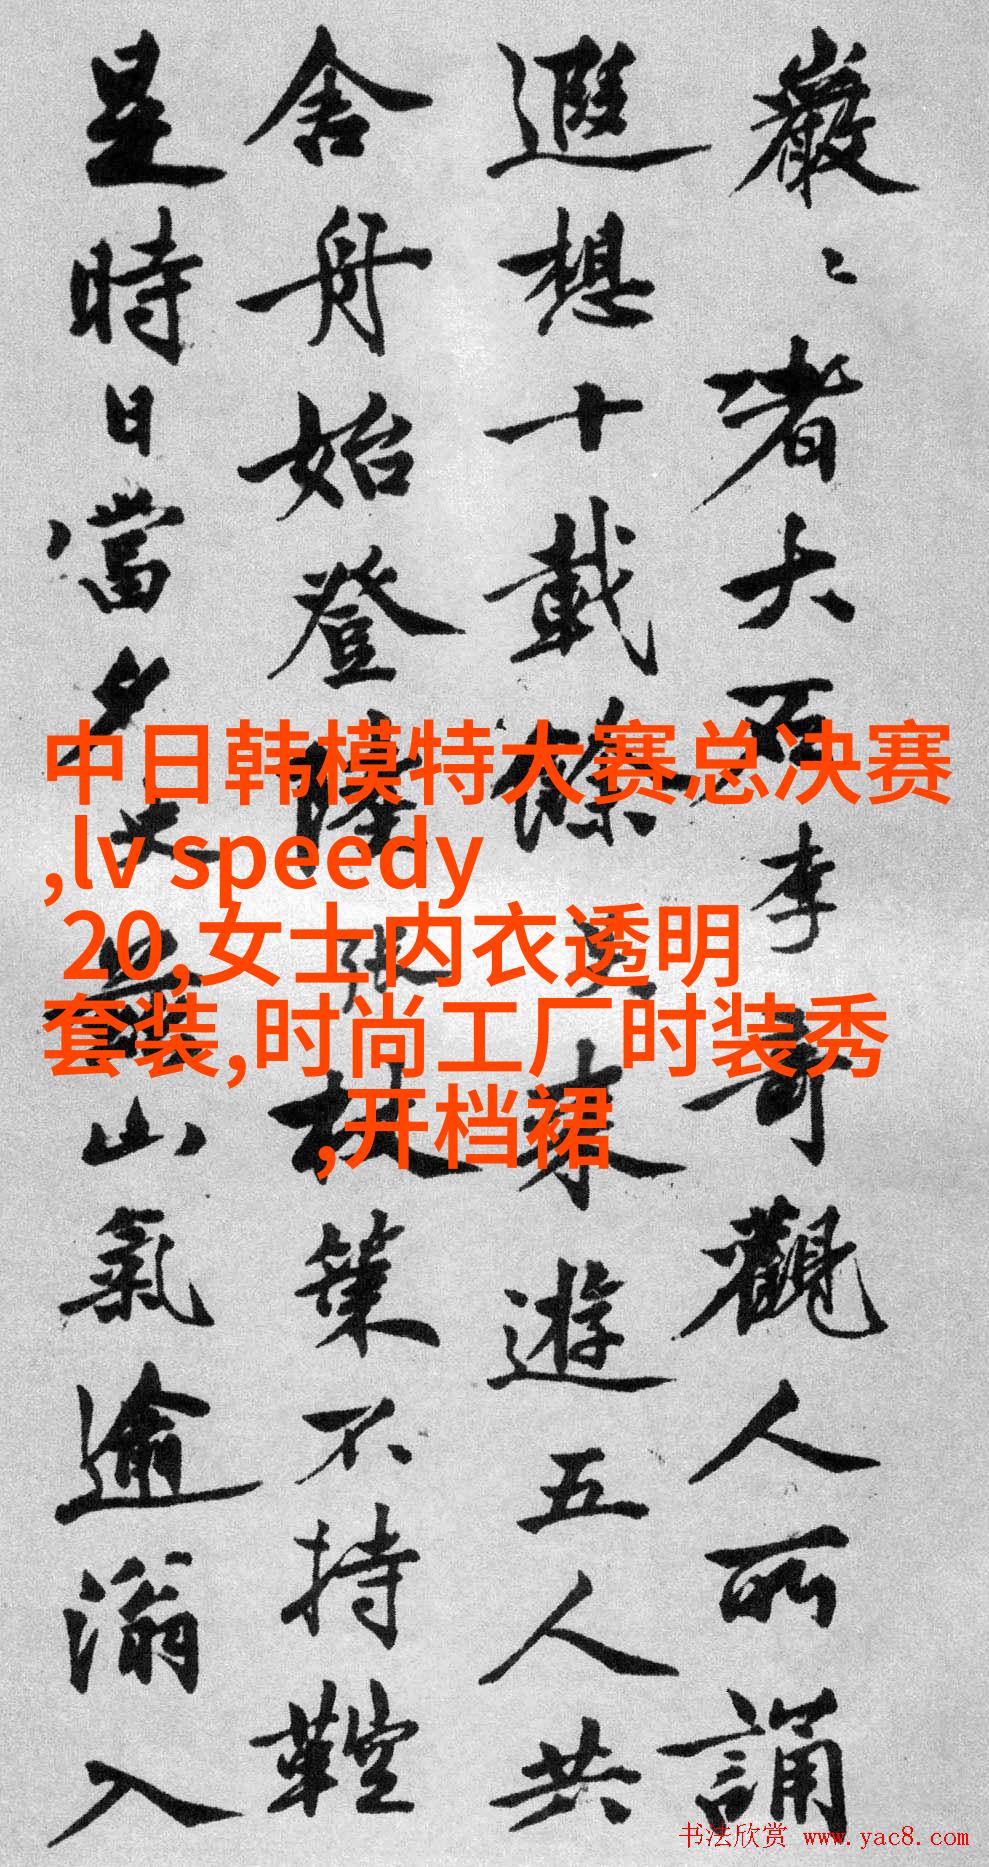 巖〻者大李哥觀人所誦
遐想十載餘來遊五人共
舍舟始登陸杖策不持鞚
是時日當夕山氣逾滃入
中日韩模特大赛总决赛
,lv speedy
20,女士内衣透明
套装,时尚工厂时装秀
,开档裙
书法欣赏 www.yac8.com